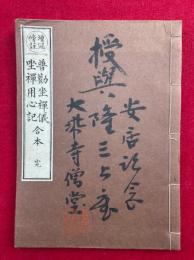 增冠
傍註
普勸坐禪儀
坐禪用心記
合本
完
安居記念
授與
隆三上座
大乘寺僧堂